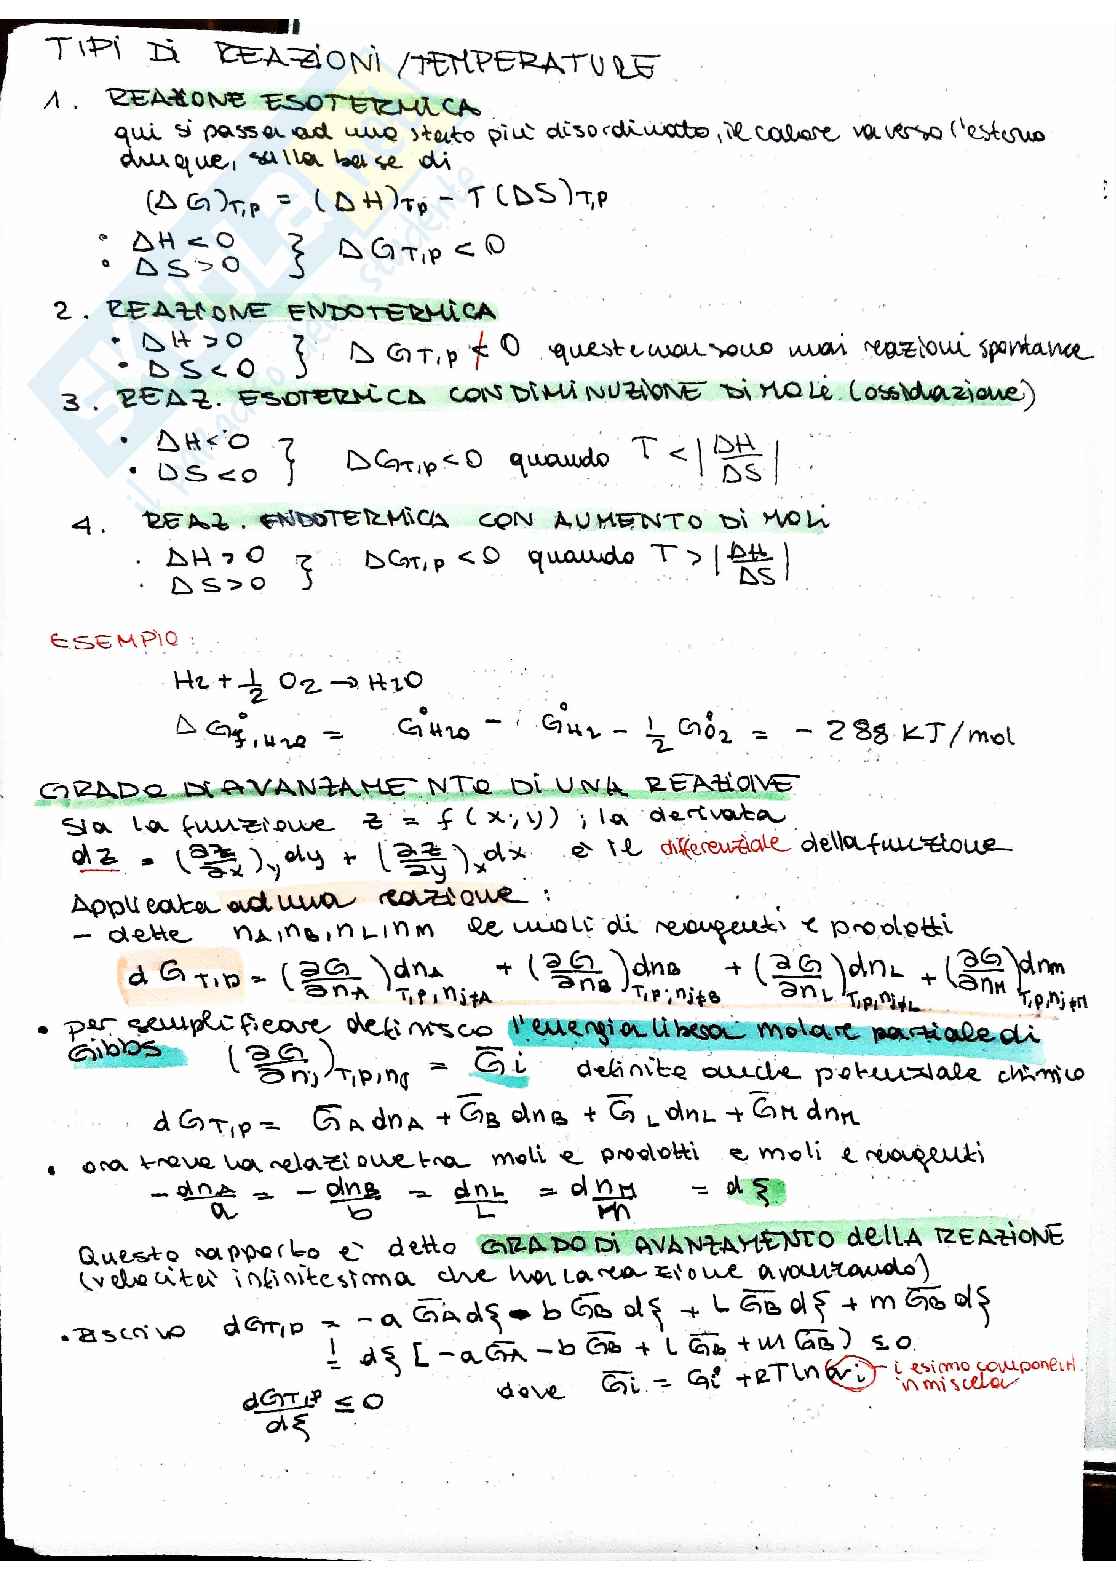 TIPI DI REAZIONI/TEMPERATURE
1. REAZIONE ESOTERMICA
qui si passa ad uno stato più disordinato, il calore va verso l'esterno
dunque, sulla base di
(ΔG)T,P = (ΔH)T,P - T(ΔS)T,P
• ΔH < 0
• ΔS > 0 } ΔG T,P < 0
2. REAZIONE ENDOTERMICA
• ΔH > 0
• ΔS < 0 } ΔG T,P ≮ 0 queste non sono mai reazioni spontanee
3. REAZ. ESOTERMICA CON DIMINUZIONE DI MOLI (ossidazione)
• ΔH < 0
• ΔS < 0 } ΔG T,P < 0 quando T < |ΔH/ΔS|
4. REAZ. ENDOTERMICA CON AUMENTO DI MOLI
· ΔH > 0
· ΔS > 0 } ΔG T,P < 0 quando T > |ΔH/ΔS|
ESEMPIO:
H2 + 1/2 O2 → H2O
ΔG°f,H2O = G°H2O - G°H2 - 1/2 G°O2 = - 288 KJ/mol
GRADO DI AVANZAMENTO DI UNA REAZIONE
Sia la funzione z = f(x,y); la derivata
dz = (∂z/∂x)y dy + (∂z/∂y)x dx è il differenziale della funzione
Applicata ad una reazione:
- dette nA, nB, nL, nM le moli di reagenti e prodotti
dG T,P = (∂G/∂nA)T,P,nj≠A dnA + (∂G/∂nB)T,P,nj≠B dnB + (∂G/∂nL)T,P,nj≠L dnL + (∂G/∂nM)T,P,nj≠M dnM
• per semplificare definisco l'energia libera molare parziale di
Gibbs (∂G/∂nj)T,P,nj = G̅i definite anche potenziale chimico
dG T,P = G̅A dnA + G̅B dnB + G̅L dnL + G̅M dnM
• ora trovo la relazione tra moli e prodotti e moli e reagenti
- dnA/a = - dnB/b = dnL/L = dnM/m = dξ
Questo rapporto è detto GRADO DI AVANZAMENTO della REAZIONE
(velocità infinitesima che ha la reazione avanzando)
• Riscrivo dG T,P = -a G̅A dξ - b G̅B dξ + L G̅B dξ + m G̅B dξ
= dξ [-a G̅A - b G̅B + L G̅B + m G̅B) ≤ 0
dG T,P/dξ ≤ 0 dove G̅i = G°i + RT ln ai - i esimo component.
in miscela